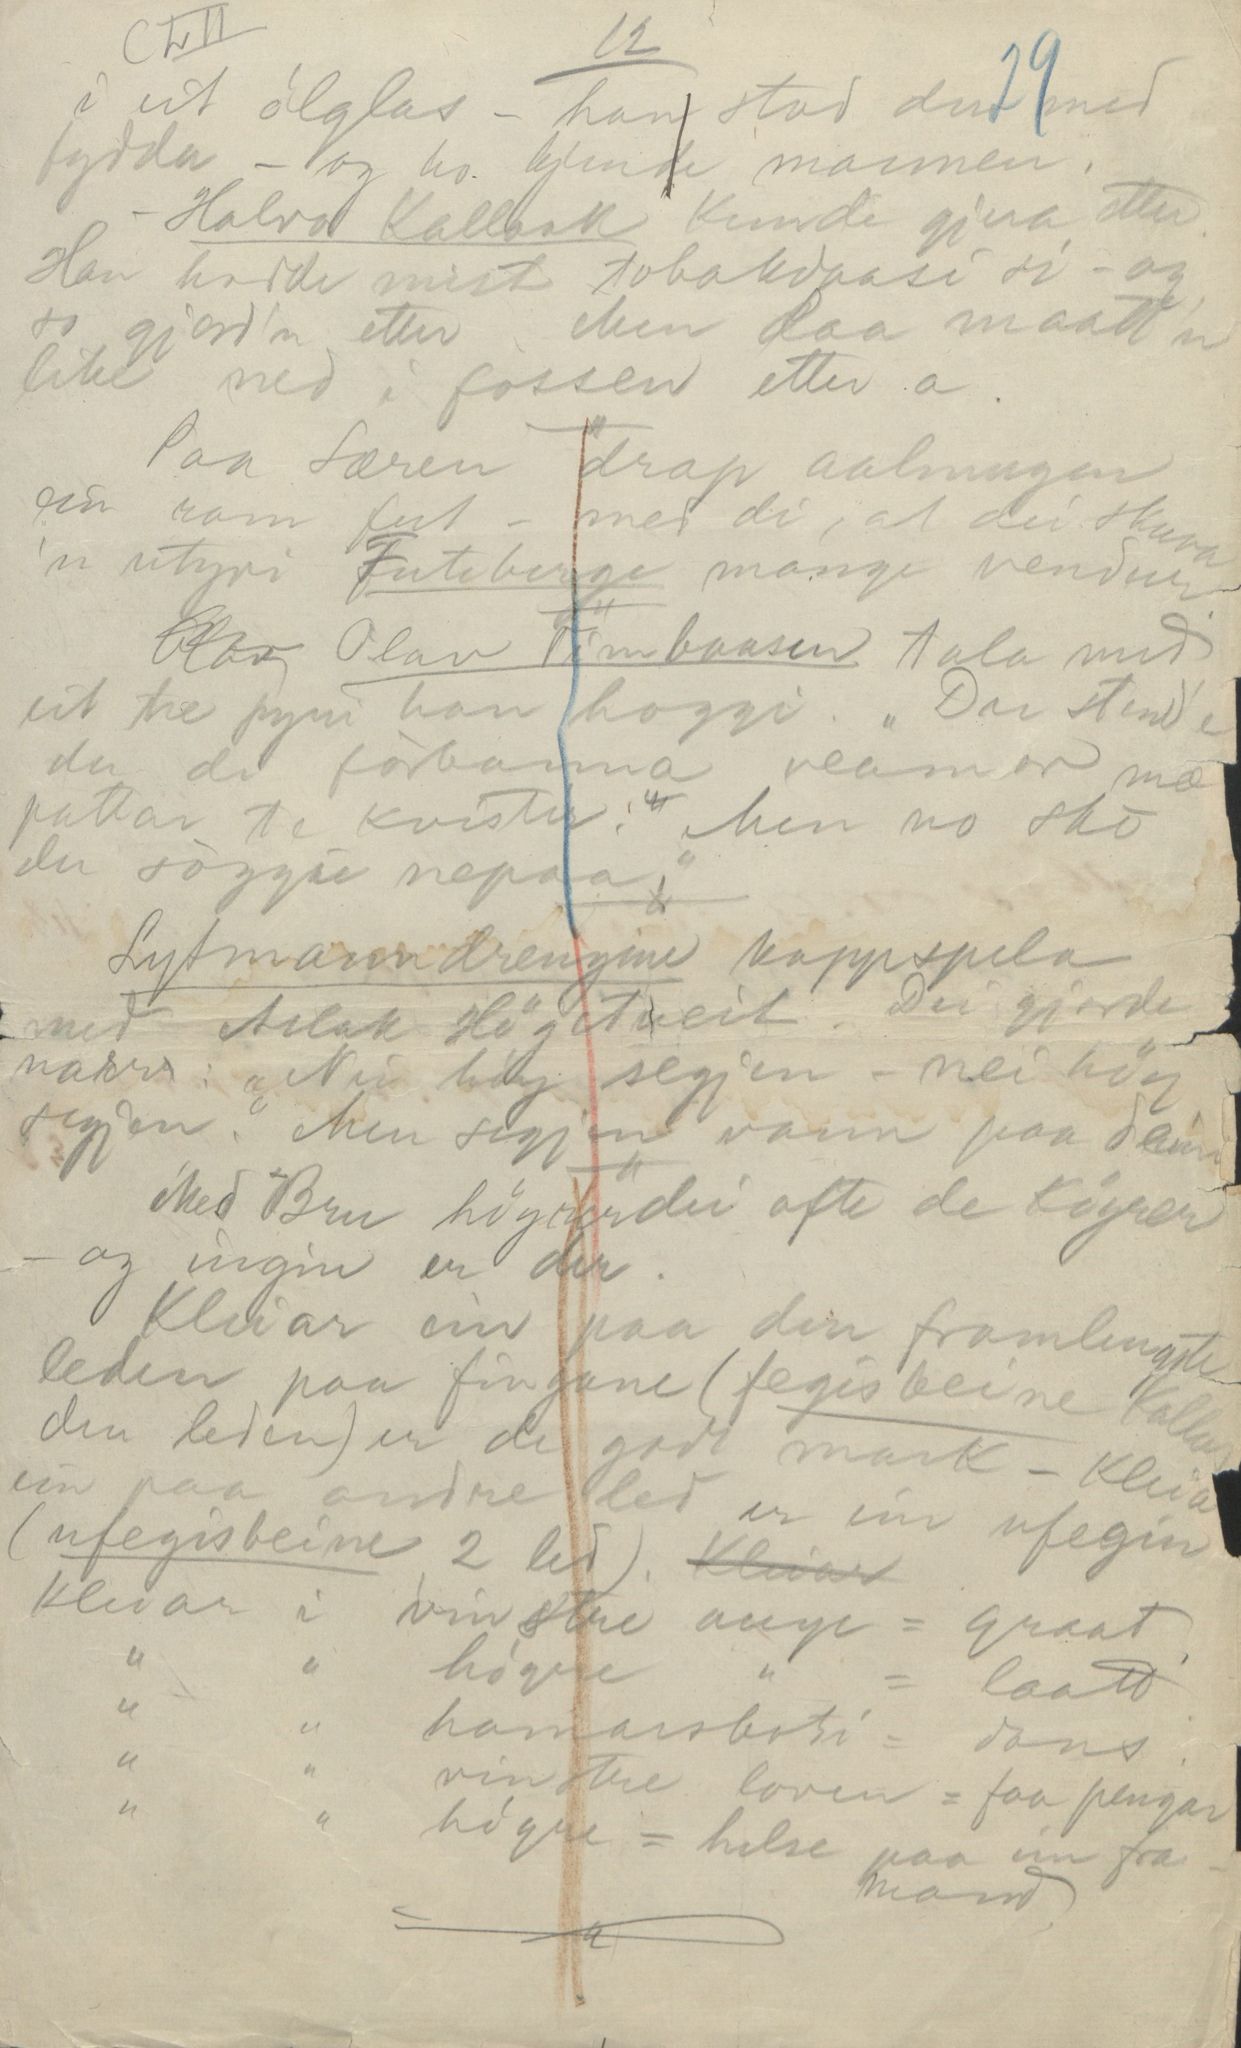 CLII
12
29
i eit ölglas - han stod der med
fydda - og ho kjende mannen.
- Halvo Kallaak kunde gjera etter.
Han hadde mist tobakdaasi si - og
so gjord'n etter. Men daa maatt'n
like ned i fossen etter a.
Paa Særen drap aalmugen
ein ram fut - med di, at dei skuva
'n utyvi Futeberge mange vendur.
Olav Olav Timbaasen tala med
eit tre fyrri han hoggi. "Der stend'e
du di forbanna veamor mæ
pattar te kvister." Men no sko
du söggje nepaa!"
Lytmanndrengine kappspela
med Aslak Högetveit. Dei gjorde
narr: "Nei höy segjen - nei höy
segjen." Men segjen vann paa deim
Med Bru höyrer dei ofte de köyrer
- og ingin er der.
Kleiar ein paa den framlengste
leden paa fingane (fegisbeine kallas
den leden) er de godt mark - kleia
ein paa andre led er ein ufegin
(ufegisbeine 2 led). Kleiar
Kleiar i vinstre auge = graat.
" " högre " = laatt
" " hamarsboti = dans.
" " vinstre loven = faa pengar
" " högre = helse paa ein fra-
mand